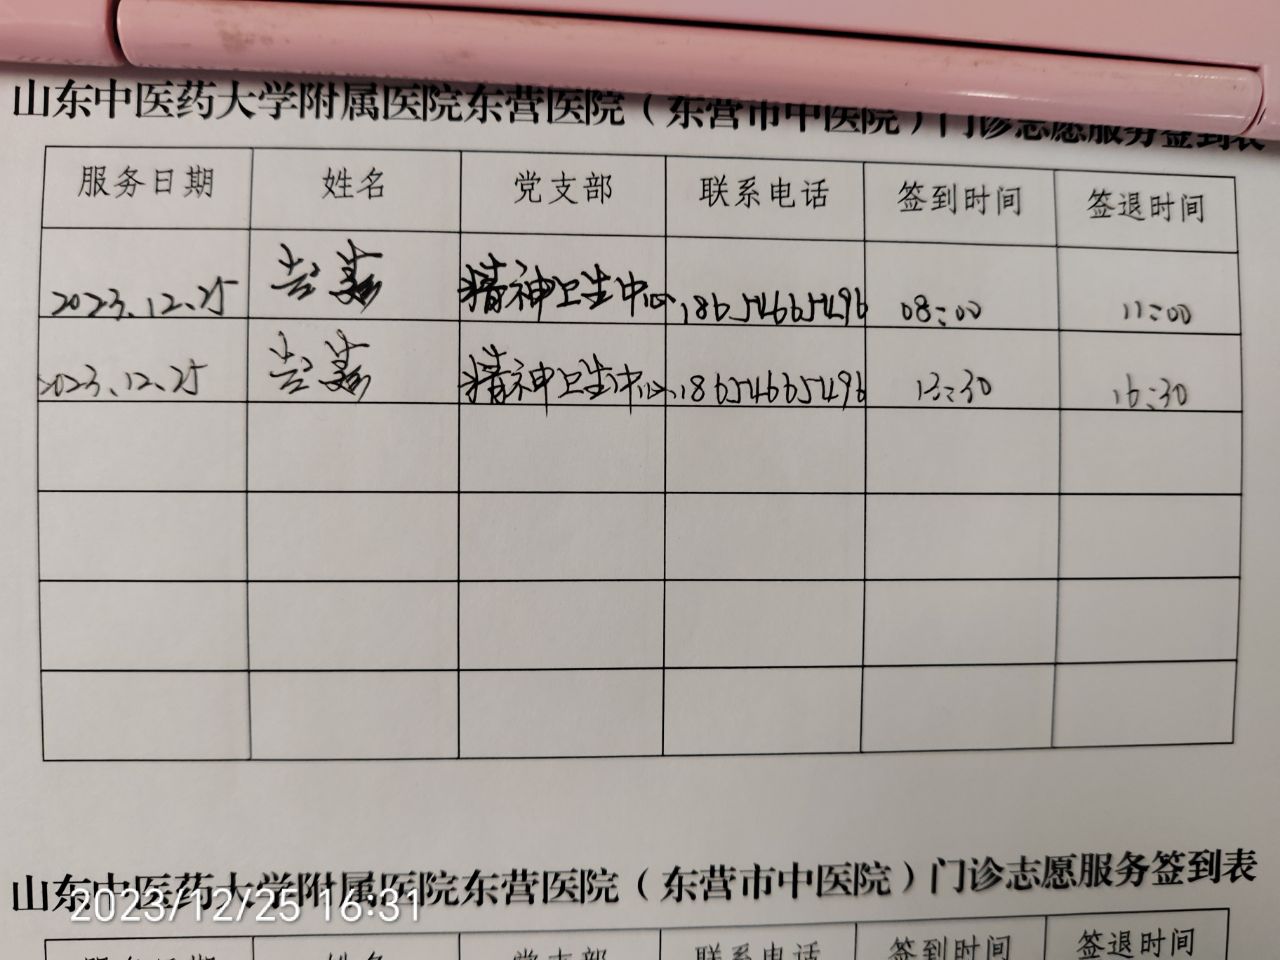 山东中医药大学附属医院东营医院（东营市中医院）门诊志愿服务签到表
服务日期 姓名 党支部 联系电话 签到时间 签退时间
2023.12.25 精神卫生中心 18654665496 08:00 11:00
2023.12.25 精神卫生中心 18654665496 13:30 16:30
山东中医药大学附属医院东营医院（东营市中医院）门诊志愿服务签到表
2023/12/25 16:31
服务日期 姓名 党支部 联系电话 签到时间 签退时间